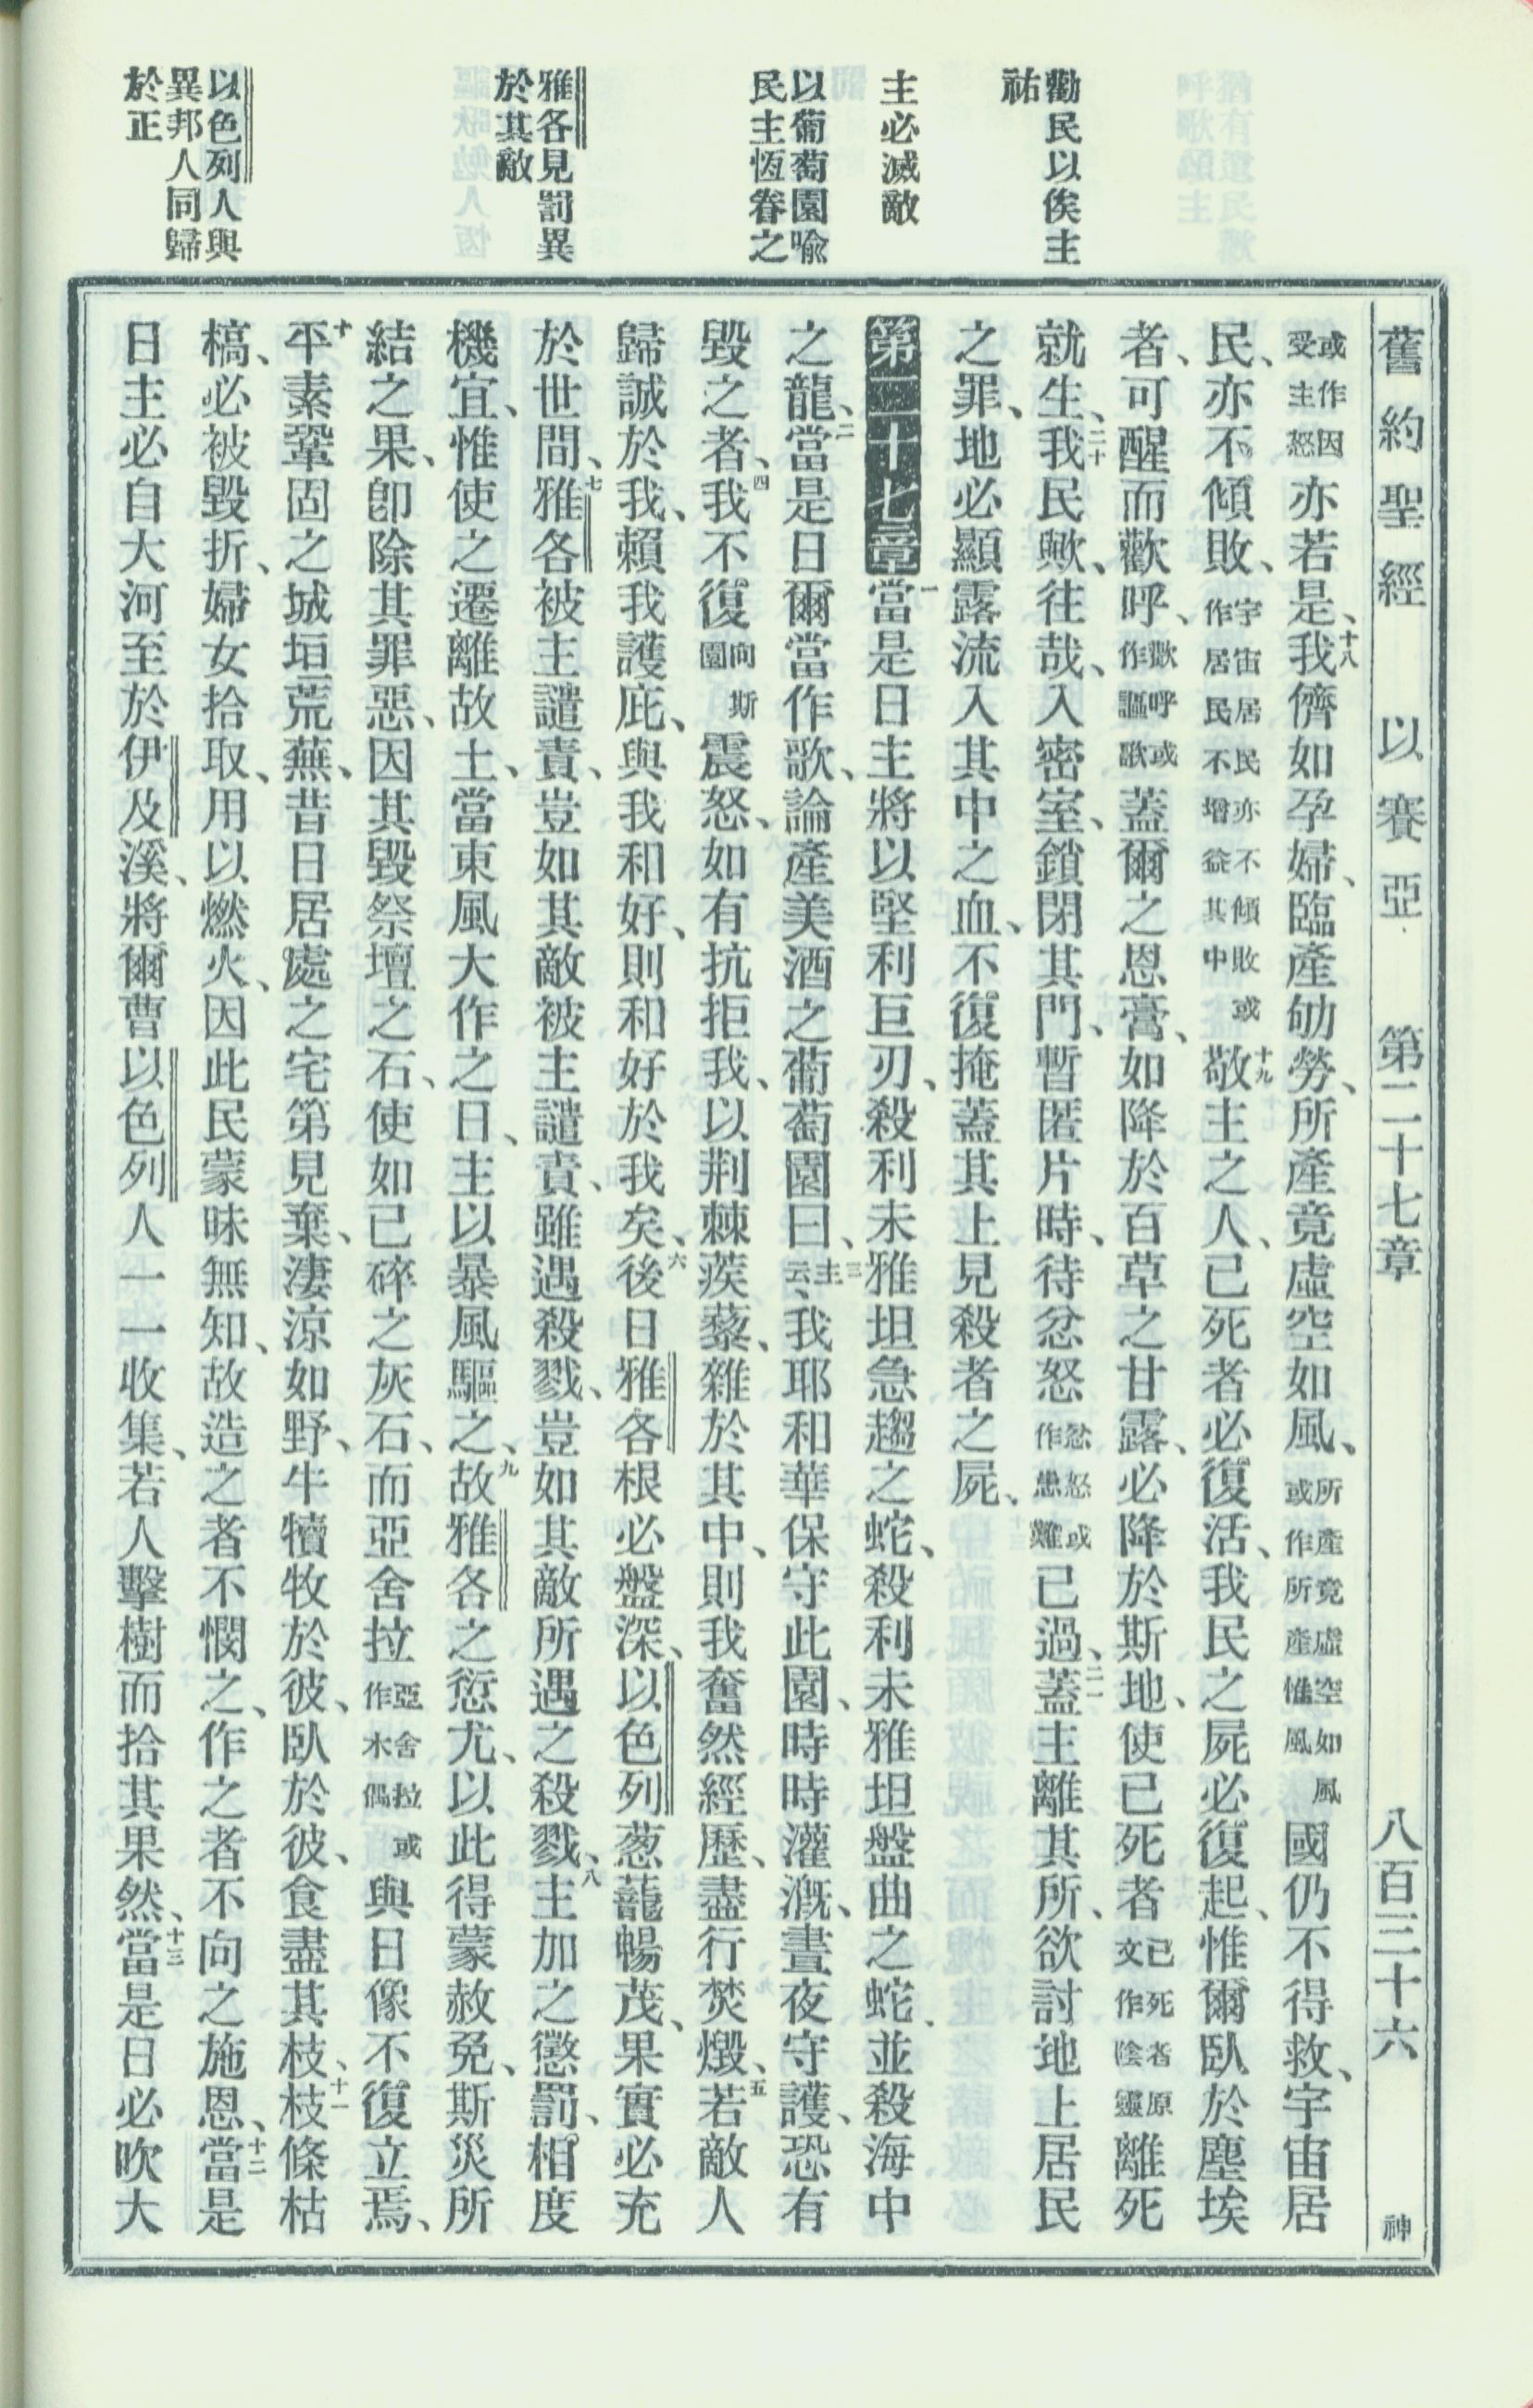 勸民以俟主
祐
主必滅敵
以葡萄園喻
民主恆眷之
雅各見罰異
於其敵
以色列人與
異邦人同歸
於正
舊約聖經 以賽亞 第二十七章 八百三十六 神
或作因受主怒亦若是、十八我儕如孕婦、臨產劬勞、所產竟虛空如風、所產竟虛空如風或作所產惟風國仍不得救、宇宙居
民、亦不傾敗、宇宙居民亦不傾敗或作居民不增益其中十九敬主之人、已死者必復活、我民之屍必復起、惟爾臥於塵埃
者、可醒而歡呼、歡呼或作謳歌蓋爾之恩膏、如降於百草之甘露、必降於斯地、使已死者已死者原文作陰靈離死
就生、二十我民歟、往哉、入密室、鎖閉其門、暫匿片時、待忿怒忿怒或作患難已過、二一蓋主離其所、欲討地上居民
之罪、地必顯露流入其中之血、不復掩蓋其上見殺者之屍、
第二十七章一當是日主將以堅利巨刃、殺利未雅坦急趨之蛇、殺利未雅坦盤曲之蛇、並殺海中
之龍、二當是日爾當作歌、論產美酒之葡萄園曰、三主云、我耶和華保守此園、時時灌溉、晝夜守護、恐有
毀之者、四我不復向斯園震怒、如有抗拒我、以荆棘蒺藜、雜於其中、則我奮然經歷、盡行焚燬、五若敵人
歸誠於我、賴我護庇、與我和好、則和好於我矣、六後日雅各根必盤深、以色列葱蘢暢茂、果實必充
於世間、七雅各被主譴責、豈如其敵被主譴責、雖遇殺戮、豈如其敵所遇之殺戮、八主加之懲罰、相度
機宜、惟使之遷離故土、當東風大作之日、主以暴風驅之、九故雅各之愆尤、以此得蒙赦免、斯災所
結之果、卽除其罪惡、因其毀祭壇之石、使如已碎之灰石、而亞舍拉亞舍拉或作木偶與日像不復立焉、
十平素鞏固之城垣荒蕪、昔日居處之宅第見棄、淒涼如野、牛犢牧於彼、臥於彼、食盡其枝、十一枝條枯
槁、必被毀折、婦女拾取、用以燃火、因此民蒙昧無知、故造之者不憫之、作之者不向之施恩、十二當是
日主必自大河至於伊及溪、將爾曹以色列人一一收集、若人擊樹而拾其果然、十三當是日必吹大